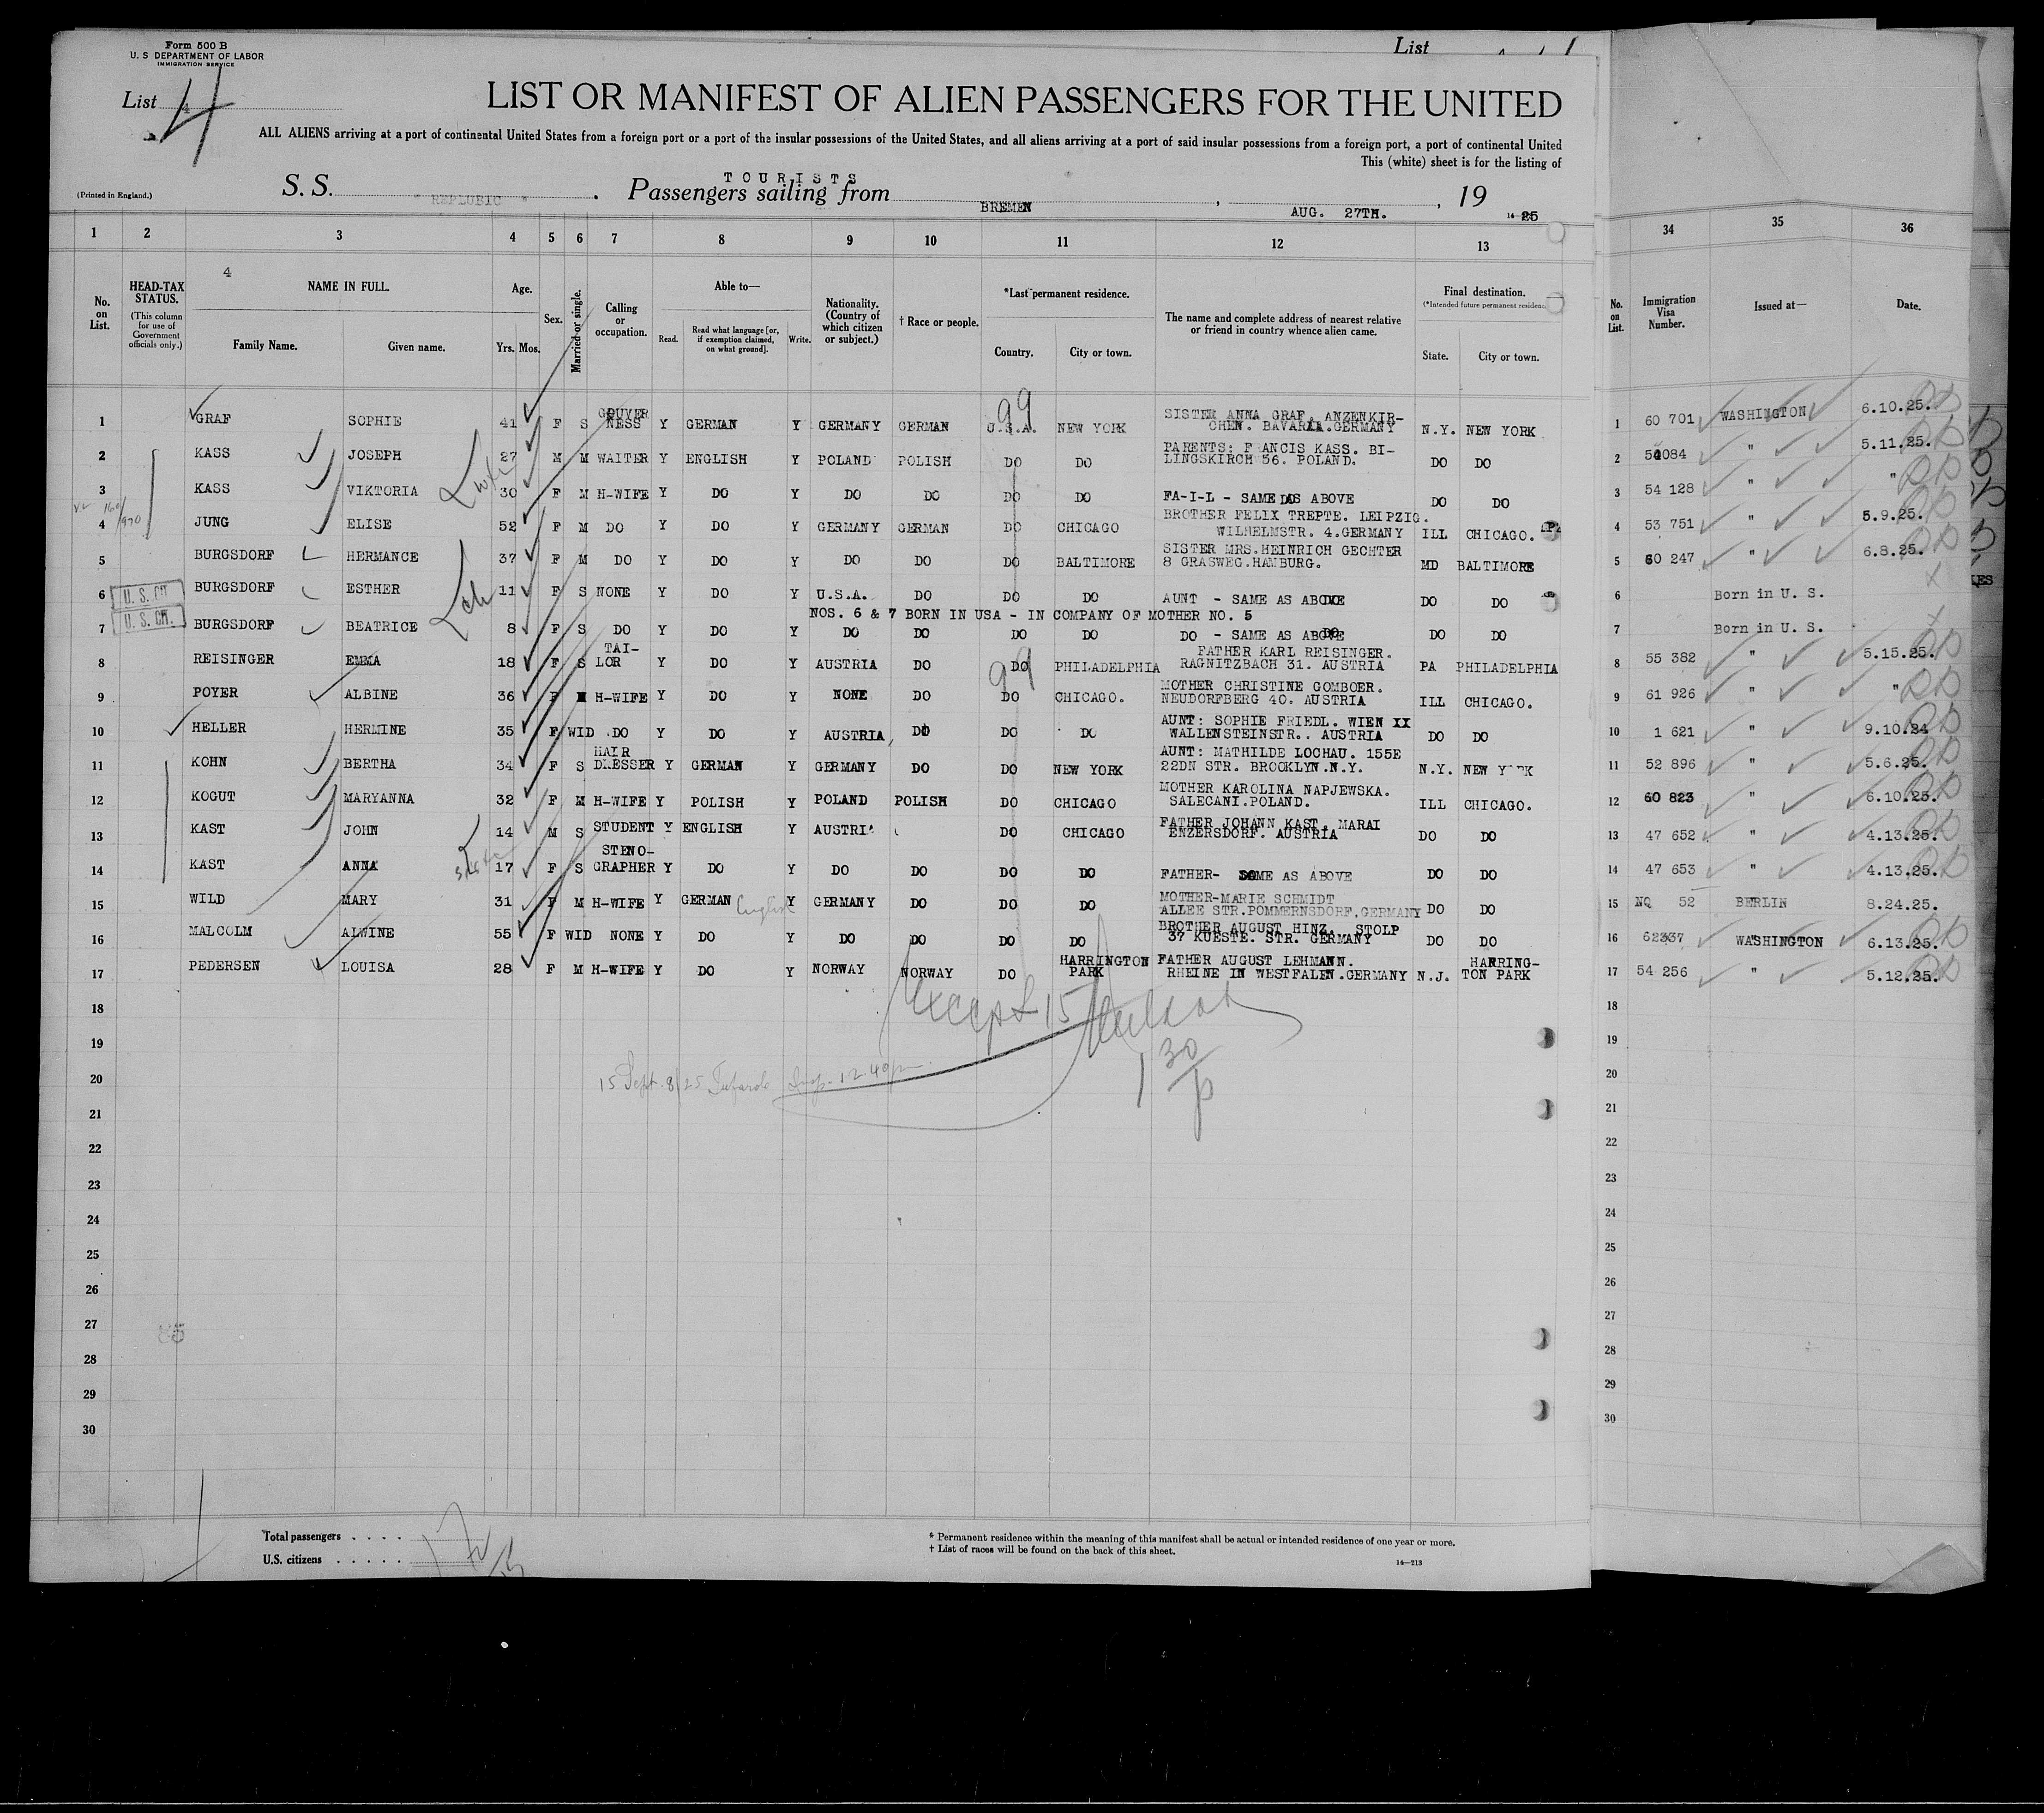 Form 500 B
U. S DEPARTMENT OF LABOR
IMMIGRATION SERVICE
List 4
List
LIST OR MANIFEST OF ALIEN PASSENGERS FOR THE UNITED
ALL ALIENS arriving at a port of continental United States from a foreign port or a port of the insular possessions of the United States, and all aliens arriving at a port of said insular possessions from a foreign port, a port of continental United
This (white) sheet is for the listing of
TOURISTS
(Printed in England.)
S. S. " REPLUBIC " . Passengers sailing from BREMEN , AUG. 27TH. , 19 25
1 2 3 4 5 6 7 8 9 10 11 12 13 34 35 36
4
No. on List.
HEAD-TAX STATUS.
(This column for use of Government officials only.)
NAME IN FULL.
Family Name. Given name.
Age.
Yrs. Mos.
Sex.
Married or single.
Calling or occupation.
Able to—
Read. Read what language [or, if exemption claimed, on what ground]. Write.
Nationality. (Country of which citizen or subject.)
† Race or people.
*Last permanent residence.
Country. City or town.
The name and complete address of nearest relative or friend in country whence alien came.
Final destination.
(*Intended future permanent residence
State. City or town.
No. on List.
Immigration Visa Number.
Issued at—
Date.
99
1 GRAF SOPHIE 41 F S GOUVER NESS Y GERMAN Y GERMANY GERMAN U.S.A. NEW YORK SISTER ANNA GRAF, ANZENKIR- CHEN. BAVARIA.GERMANY N.Y. NEW YORK 1 60 701 WASHINGTON 6.10.25.
2 KASS JOSEPH 27 M M WAITER Y ENGLISH Y POLAND POLISH DO DO PARENTS: F ANCIS KASS. BI- LINGSKIRCH 56. POLAND. DO DO 2 54084 " 5.11.25.
3 KASS VIKTORIA 30 F M H-WIFE Y DO Y DO DO DO DO FA-I-L - SAME AS ABOVE DO DO 3 54 128 " "
4 JUNG ELISE 52 F M DO Y DO Y GERMANY GERMAN DO CHICAGO BROTHER FELIX TREPTE. LEIPZIG. WILHELMSTR. 4.GERMANY ILL CHICAGO. 4 53 751 " 5.9.25.
5 BURGSDORF HERMANCE 37 F M DO Y DO Y DO DO DO BALTIMORE SISTER MRS.HEINRICH GECHTER 8 GRASWEG.HAMBURG. MD BALTIMORE 5 60 247 " 6.8.25.
6 U. S. CIT. BURGSDORF ESTHER 11 F S NONE Y DO Y U.S.A. DO DO DO AUNT - SAME AS ABOVE DO DO 6 Born in U. S.
NOS. 6 & 7 BORN IN USA - IN COMPANY OF MOTHER NO. 5
7 U. S. CIT. BURGSDORF BEATRICE 8 F S DO Y DO Y DO DO DO DO DO - SAME AS ABOVE DO DO 7 Born in U. S.
8 REISINGER EMMA 18 F S TAI- LOR Y DO Y AUSTRIA DO DO PHILADELPHIA FATHER KARL REISINGER. RAGNITZBACH 31. AUSTRIA PA PHILADELPHIA 8 55 382 " 5.15.25.
9 POYER ALBINE 36 F M H-WIFE Y DO Y NONE DO DO CHICAGO. MOTHER CHRISTINE GOMBOER. NEUDORFBERG 40. AUSTRIA ILL CHICAGO. 9 61 926 " "
10 HELLER HERMINE 35 F WID DO Y DO Y AUSTRIA DO DO DO AUNT: SOPHIE FRIEDL. WIEN XX WALLENSTEINSTR.. AUSTRIA DO DO 10 1 621 " 9.10.24
11 KOHN BERTHA 34 F S HAIR DRESSER Y GERMAN Y GERMANY DO DO NEW YORK AUNT: MATHILDE LOCHAU. 155E 22DN STR. BROOKLYN.N.Y. N.Y. NEW YORK 11 52 896 " 5.6.25.
12 KOGUT MARYANNA 32 F M H-WIFE Y POLISH Y POLAND POLISH DO CHICAGO MOTHER KAROLINA NAPJEWSKA. SALECANI.POLAND. ILL CHICAGO. 12 60 823 " 6.10.25.
13 KAST JOHN 14 M S STUDENT Y ENGLISH Y AUSTRIA DO CHICAGO FATHER JOHANN KAST. MARAI ENZERSDORF. AUSTRIA DO DO 13 47 652 " 4.13.25.
14 KAST ANNA 17 F S STENO- GRAPHER Y DO Y DO DO DO DO FATHER- SAME AS ABOVE DO DO 14 47 653 " 4.13.25.
15 WILD MARY 31 F M H-WIFE Y GERMAN English Y GERMANY DO DO DO MOTHER-MARIE SCHMIDT ALLEE STR.POMMERNSDORF.GERMANY DO DO 15 NQ 52 BERLIN 8.24.25.
16 MALCOLM ALWINE 55 F WID NONE Y DO Y DO DO DO DO BROTHER AUGUST HINZ. STOLP 37 KUESTE. STR. GERMANY DO DO 16 62337 WASHINGTON 6.13.25.
17 PEDERSEN LOUISA 28 F M H-WIFE Y DO Y NORWAY NORWAY DO HARRINGTON PARK FATHER AUGUST LEHMANN. RHEINE IN WESTFALEN.GERMANY N.J. HARRING- TON PARK 17 54 256 " 5.12.25.
18 18
Except 15
19 19
1 30/p
20 15 Sept. 8/25 Insp. 12.40pm 20
21 21
22 22
23 23
24 24
25 25
26 26
27 27
28 28
29 29
30 30
Total passengers . . . . 17
U.S. citizens . . . . .
* Permanent residence within the meaning of this manifest shall be actual or intended residence of one year or more.
† List of races will be found on the back of this sheet.
14—213